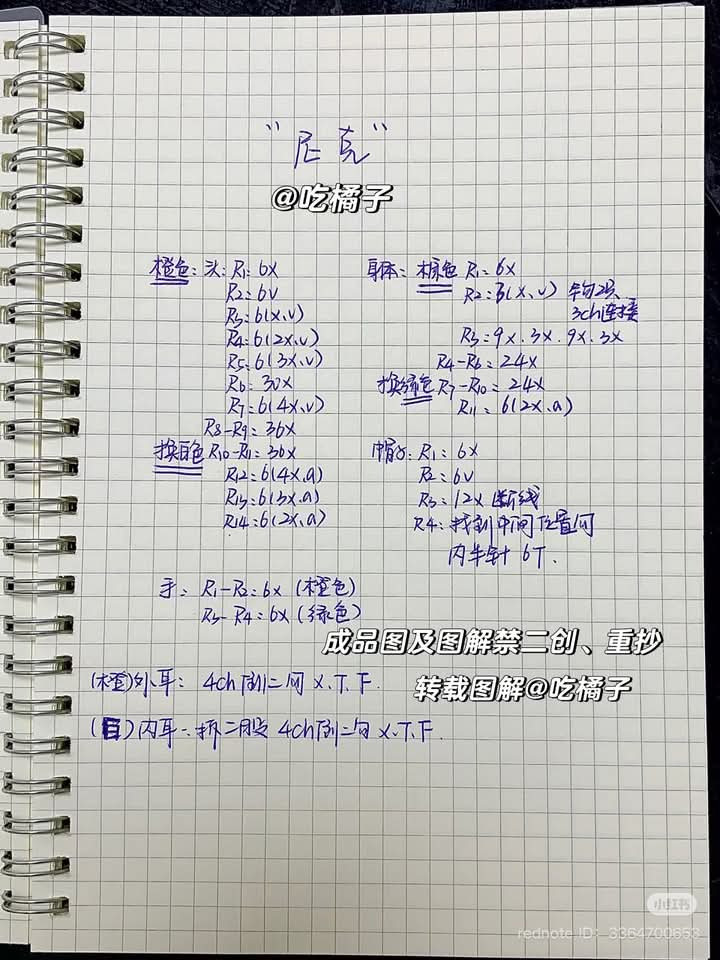 "尼克"
@吃橘子
橙色:头:R1:6X
R2:6V
R3:6(X,V)
R4:6(2X,V)
R5:6(3X,V)
R6:30X
R7:6(4X,V)
R8-R9:36X
换白色R10-R11:36X
R12:6(4X,a)
R13:6(3X,a)
R14:6(2X,a)
身体:棕色 R1:6X
R2:3(X,V)
3ch连接
R3:9X.3X.9X.3X
R4-R6:24X
换绿色R7-R10:24X
R11:6(2X,a)
帽子:R1:6X
R2:6V
R3:12X 断线
R4:找到中间位置向
内半针 6T.
手:R1-R2:6X(橙色)
R3-R4:6X(绿色)
成品图及图解禁二创、重抄
转载图解@吃橘子
(橙)外耳:4ch倒二勾 X.T.F.
(白)内耳:拆二股 4ch倒二勾 X.T.F.
小红书
rednote ID: 3364700653